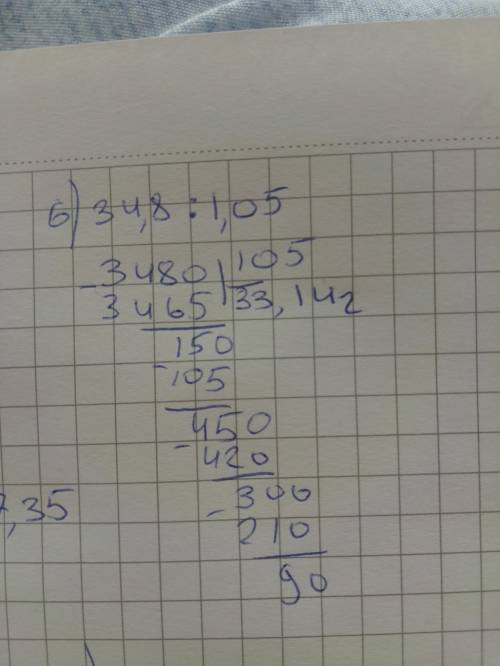 б) 34,8 : 1,05
- 3480 | 105
3465 | 33,142
150
- 105
450
- 420
300
- 210
90
7,35